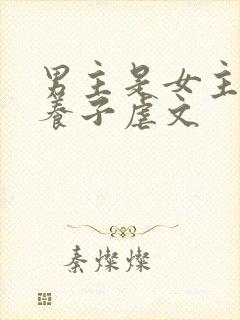 男主是女主
养子虐文
秦燦燦